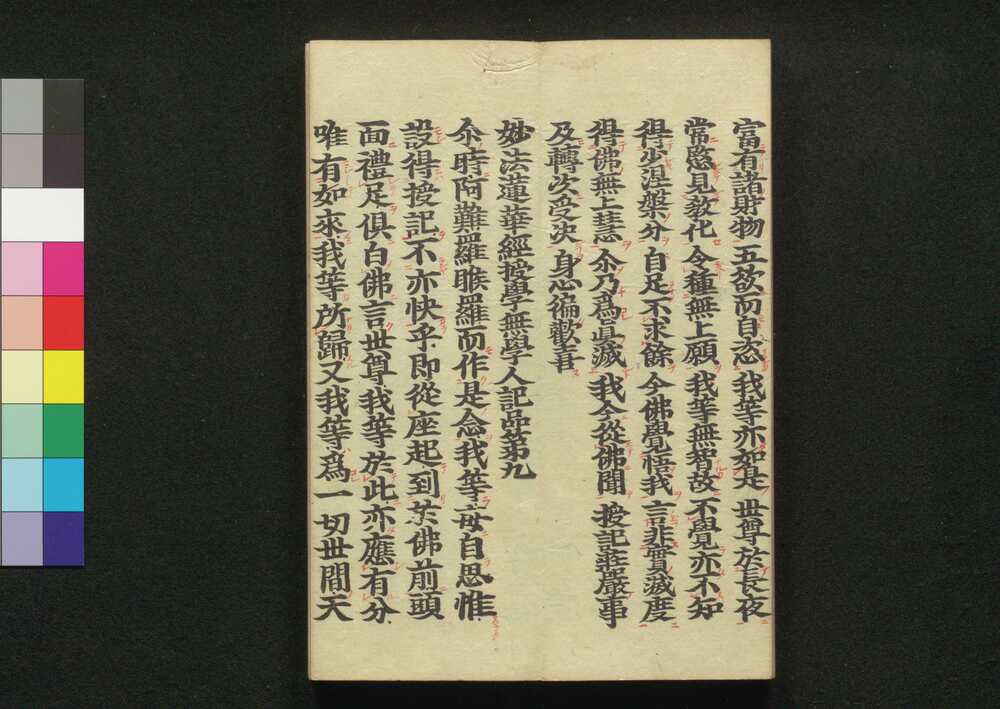 富有諸財物 五欲而自恣 我等亦如是 世尊於長夜
常愍見教化 令種無上願 我等無智故 不覺亦不知
得少涅槃分 自足不求餘 今佛覺悟我 言非實滅度
得佛無上慧 尒乃爲眞滅 我今從佛聞 授記莊嚴事
及轉次受決 身心徧歡喜
妙法蓮華經授學無學人記品第九
尒時阿難羅睺羅而作是念我等每自思惟
設得授記不亦快乎即從座起到於佛前頭
面禮足俱白佛言世尊我等於此亦應有分
唯有如來我等所歸又我等爲一切世間天